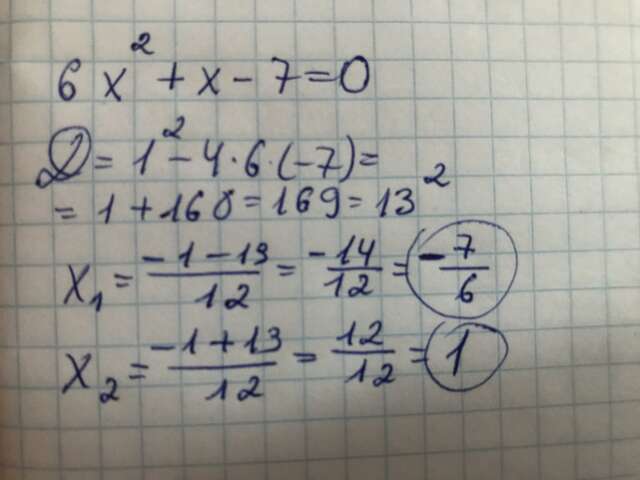 6x² + x - 7 = 0
D = 1² - 4·6·(-7) =
= 1 + 168 = 169 = 13²
x₁ = (-1 - 13)/12 = -14/12 = -7/6
x₂ = (-1 + 13)/12 = 12/12 = 1